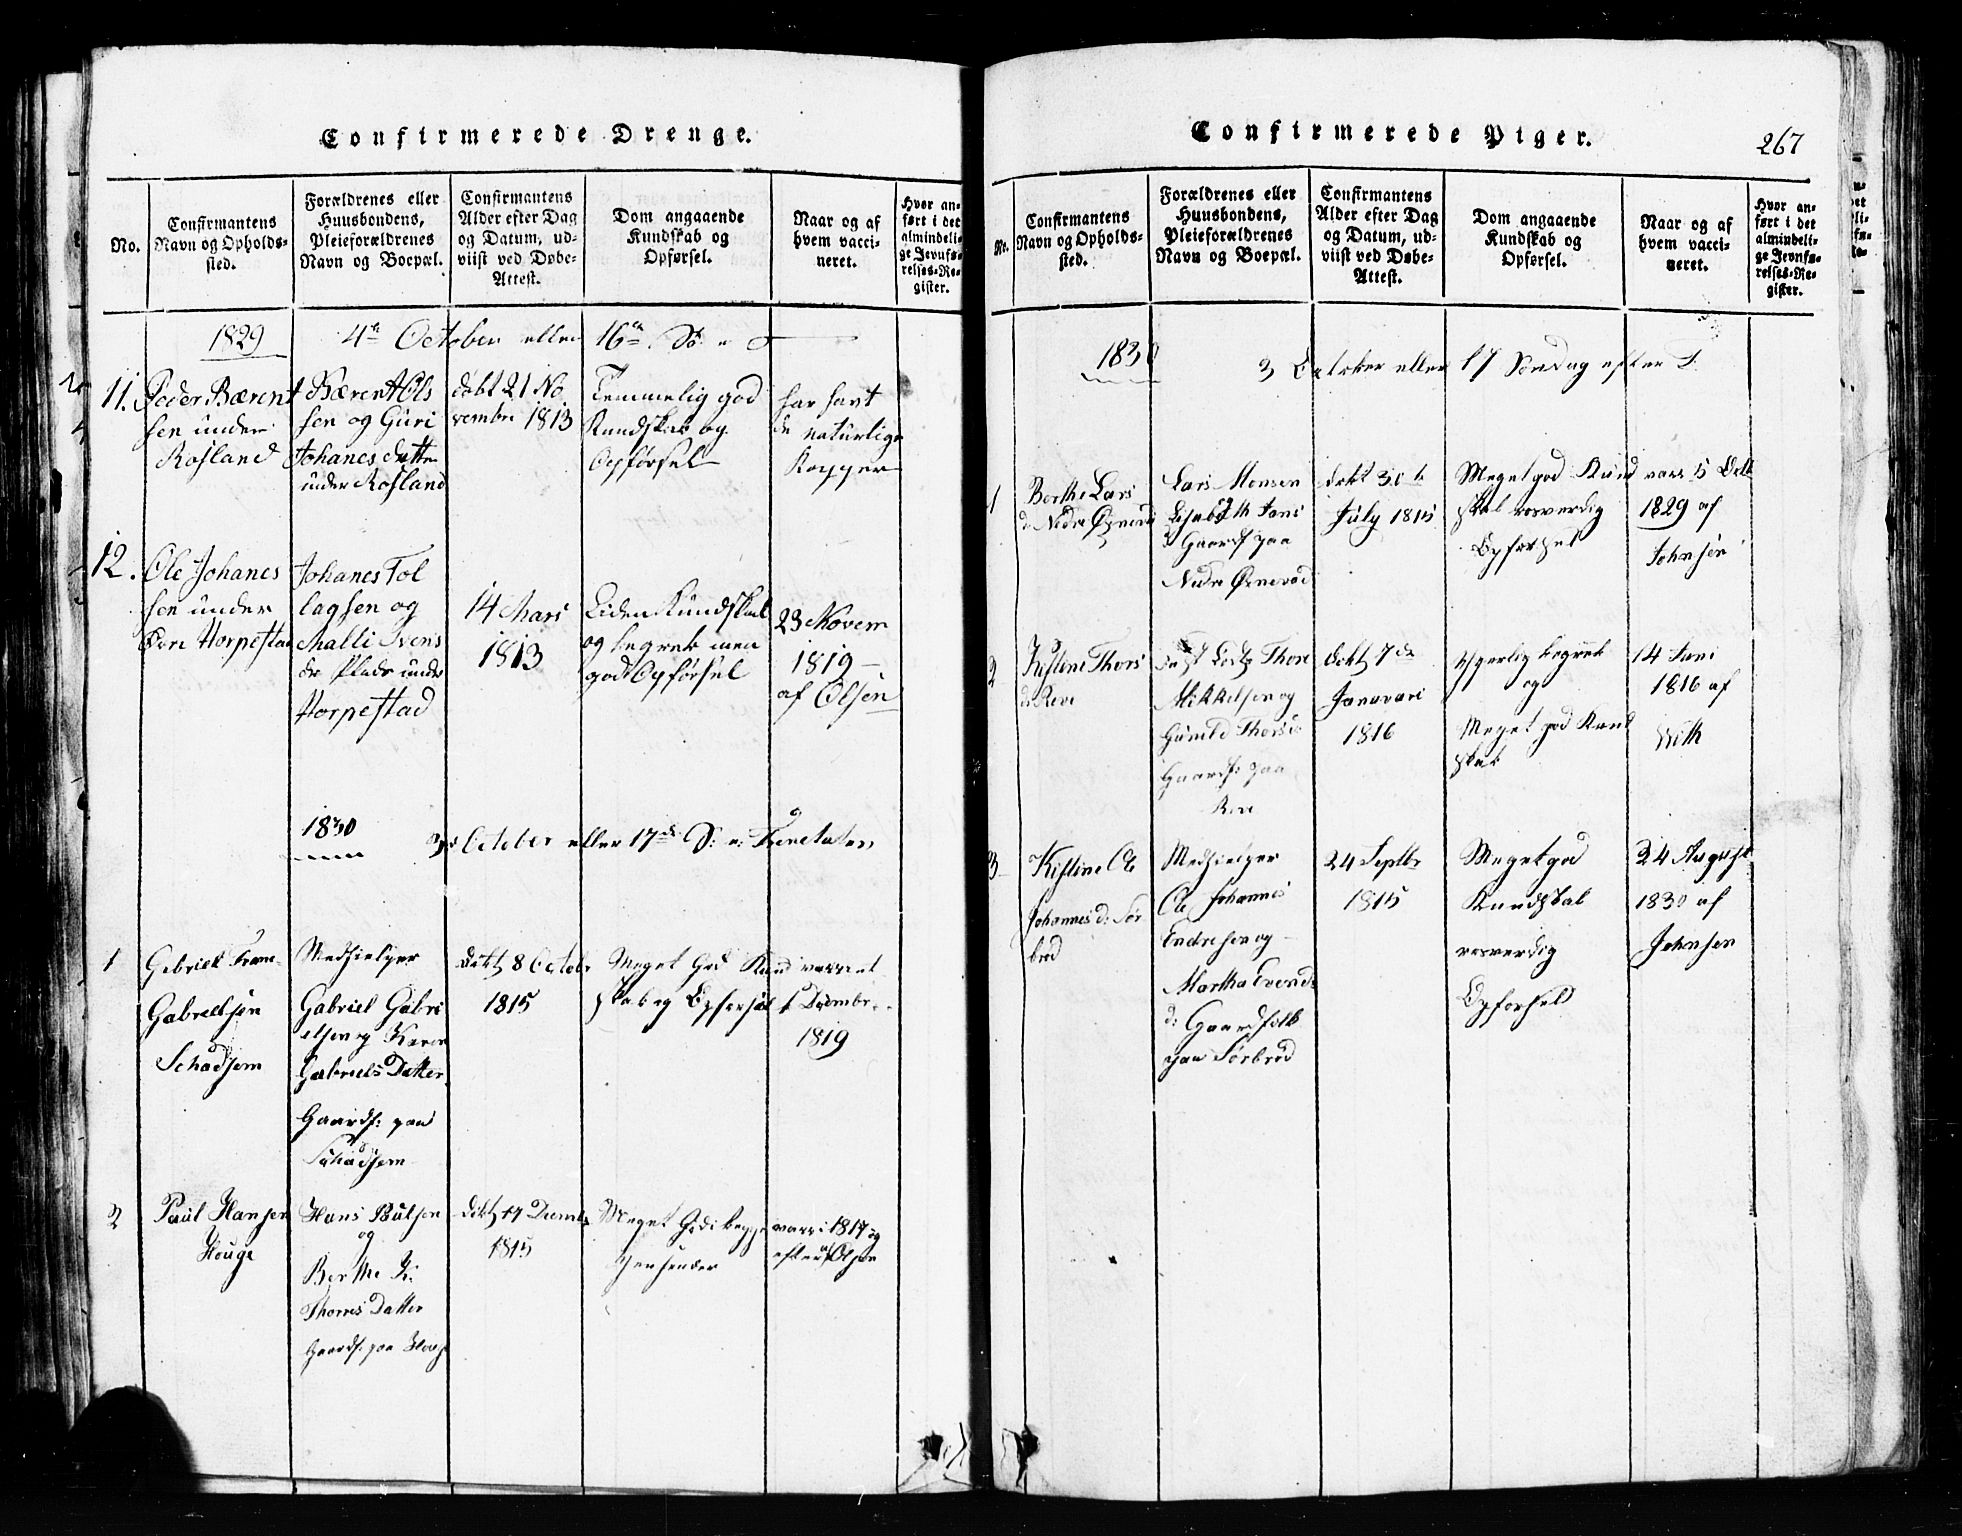 Confirmerede Drenge.
No.
Confirmantens
Navn og Opholds-
sted.
Forældrenes eller
Huusbondens,
Pleieforældrenes
Navn og Boepæl.
Confirmantens
Alder efter Dag
og Datum, ud-
viist ved Døbe-
Attest.
Dom angaaende
Kundskab og
Opførsel.
Naar og af
hvem vacci-
neret.
Hvor an-
ført i det
almindeli-
ge Jevnfø-
relses-Re-
gister.
1829
4de October eller 16de Sø:
11.
Peder Bærent
sen under
Rosland
Bærent Ols
sen og Guri
Johanes datter
under Rosland
døbt 21 No
vembr 1813
Temmelig god
Kundskab og
Opførsel
har havt
de naturlige
Kopper
12.
Ole Johanes
sen under
Horpestad
Johanes Tol
lagsen og
Malli Svens
dr Plads under
Horpestad
14 Mars
1813
Liden Kundskab
og begreb men
god Opførsel
23 Novem
1819
af Olsen
1830
3 October eller 17de S: e: Trinitatis
1
Gabriel
Gabrielsen
Schadsem
Medhielper
Gabriel Gabri
elsen og Karen
Gabriels Datter
Gaardf: paa
Schadsem
Døbt 8 Octobr
1815
Meget God Kund
skab og Opførsel
1819
2
Paul Hansen
Houge
Hans Paulsen
og
Berthe K.
Thores Datter
Gaardf: paa Houge
Døbt 17 Decembr
1815
Meget God i begge
Henseender
vacc: 1817 og
efter af Olsen
Confirmerede Piger.
267
No.
Confirmantens
Navn og Opholds-
sted.
Forældrenes eller
Huusbondens,
Pleieforældrenes
Navn og Boepæl.
Confirmantens
Alder efter Dag
og Datum, ud-
viist ved Døbe-
Attest.
Dom angaaende
Kundskab og
Opførsel.
Naar og af
hvem vacci-
neret.
Hvor an-
ført i det
almindeli-
ge Jevnfø-
relses-Re-
gister.
1830
3 October eller 17 Søndag efter T.
1
Berthe Lars
d: Nedre
Lars Monsen
Gaardf paa
Nedre
døbt 30te
July 1815
Meget god Kund
skab rosverdig
Opførsel
vacc 5
1829 af
Johnsen
2
Kistine Thors
d: Reve
Thore
Mikkelsen og
Gunild Thors
Gaardf: paa
Reve
døbt 7de
Januari
1816
begreb
og
Meget god Kund
skab
14 Juni
1816 af
With
3
Kistine Ole
Johannes d: Sør
brød
Medhielper
Ole Johannes
Endresen og
Martha Evends
d: Gaardfolk
paa Sørbrød
24 Septbr
1815
Meget god
Kundskab
rosverdig
Opførsel
24 August
1830 af
Johnsen